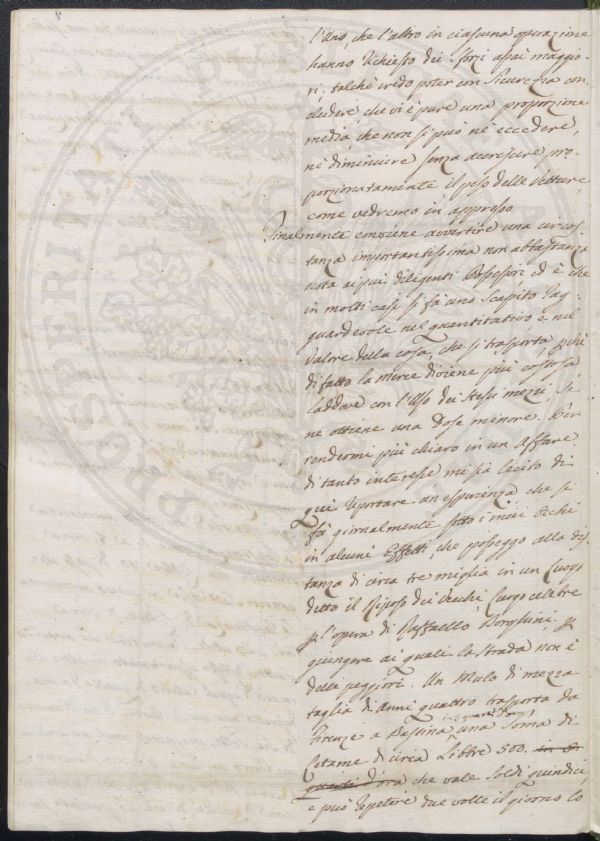 l'uno, che l'altro in ciascuna operazione
hanno richiesto dei sforzi assai maggio=
ri; talchè credo poter con sicurezza con
cludere che vi è pure una proporzione
media, che non si può nè eccedere,
nè diminuire senza accrescere pro=
porzionatamente il peso delle vetture,
come vedremo in appresso
Finalmente conviene avvertire una circos=
tanza importantissima non abbastanza
nota ai più diligenti Possessori, ed è che
in molti casi si fà uno scapito rag=
guardevole nel quantitativo e nel
valore della cosa, che si trasporta, poichè
di fatto la merce diviene più costosa
laddove con l'uso dei stessi mezzi si
ne ottiene una dose minore. Per
rendermi più chiaro in un affare
di tanto interesse mi sia lecito di
qui riportare un esperienza che si
fà giornalmente sotto i miei occhi
in alcuni Effetti, che posseggo alla dis=
tanza di circa tre miglia in un Luogo
detto il Riposo dei Vecchi, luogo celebre
p l'opera di Raffaello Borghini, p
giungere ai quali la strada non è
delle peggiori. Un Mulo di mezza
taglia di Anni quattro trasporta da
in 5 quarti d'ora
Firenze a una Soma di
Letame di circa Libbre 500. in 5
quarti d'ora che vale soldi quindici
e può repetere due volte il giorno lo
PROSPERITATI